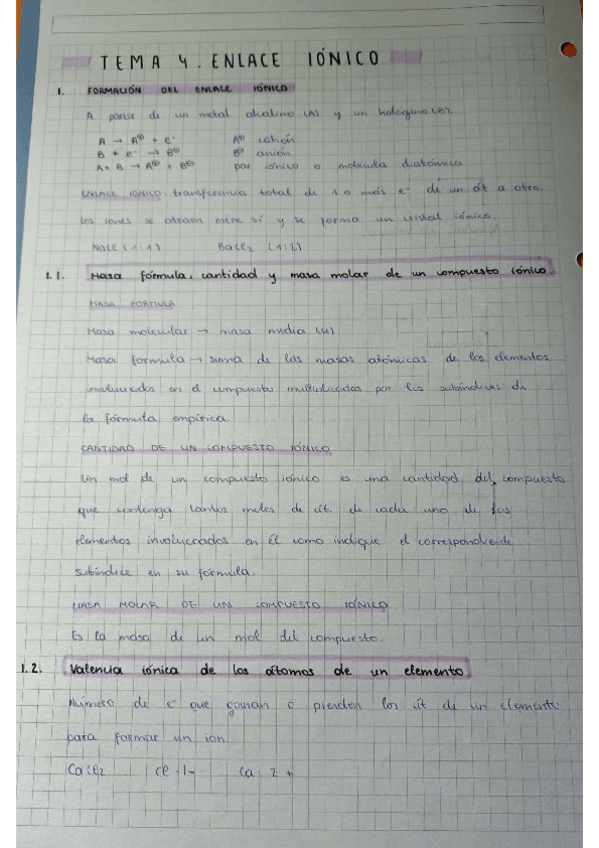 TEMA 4. ENLACE IÓNICO
1. FORMACIÓN DEL ENLACE IÓNICO
A partir de un metal alcalino (A) y un halógeno (B).
A → A⊕ + e⁻ A⊕ catión
B + e⁻ → B⊖ B⊖ anión
A + B → A⊕ + B⊖ par iónico o molécula diatómica
ENLACE IÓNICO: transferencia total de 1 o más e⁻ de un át a otro.
Los iones se atraen entre sí y se forma un cristal iónico.
NaCl (1:1) BaCl₂ (1:2)
1.1. Masa fórmula, cantidad y masa molar de un compuesto iónico
MASA FÓRMULA
Masa molecular → masa media (u)
Masa fórmula → suma de las masas atómicas de los elementos
involucrados en el compuesto multiplicadas por los subíndices de
la fórmula empírica.
CANTIDAD DE UN COMPUESTO IÓNICO
Un mol de un compuesto iónico es una cantidad del compuesto
que contenga tantos moles de át. de cada uno de los
elementos involucrados en él como indique el correspondiente
subíndice en su fórmula.
MASA MOLAR DE UN COMPUESTO IÓNICO
Es la masa de un mol del compuesto.
1.2. Valencia iónica de los átomos de un elemento
Número de e⁻ que ganan o pierden los át de un elemento
para formar un ion
CaCl₂ Cl: 1- Ca: 2+